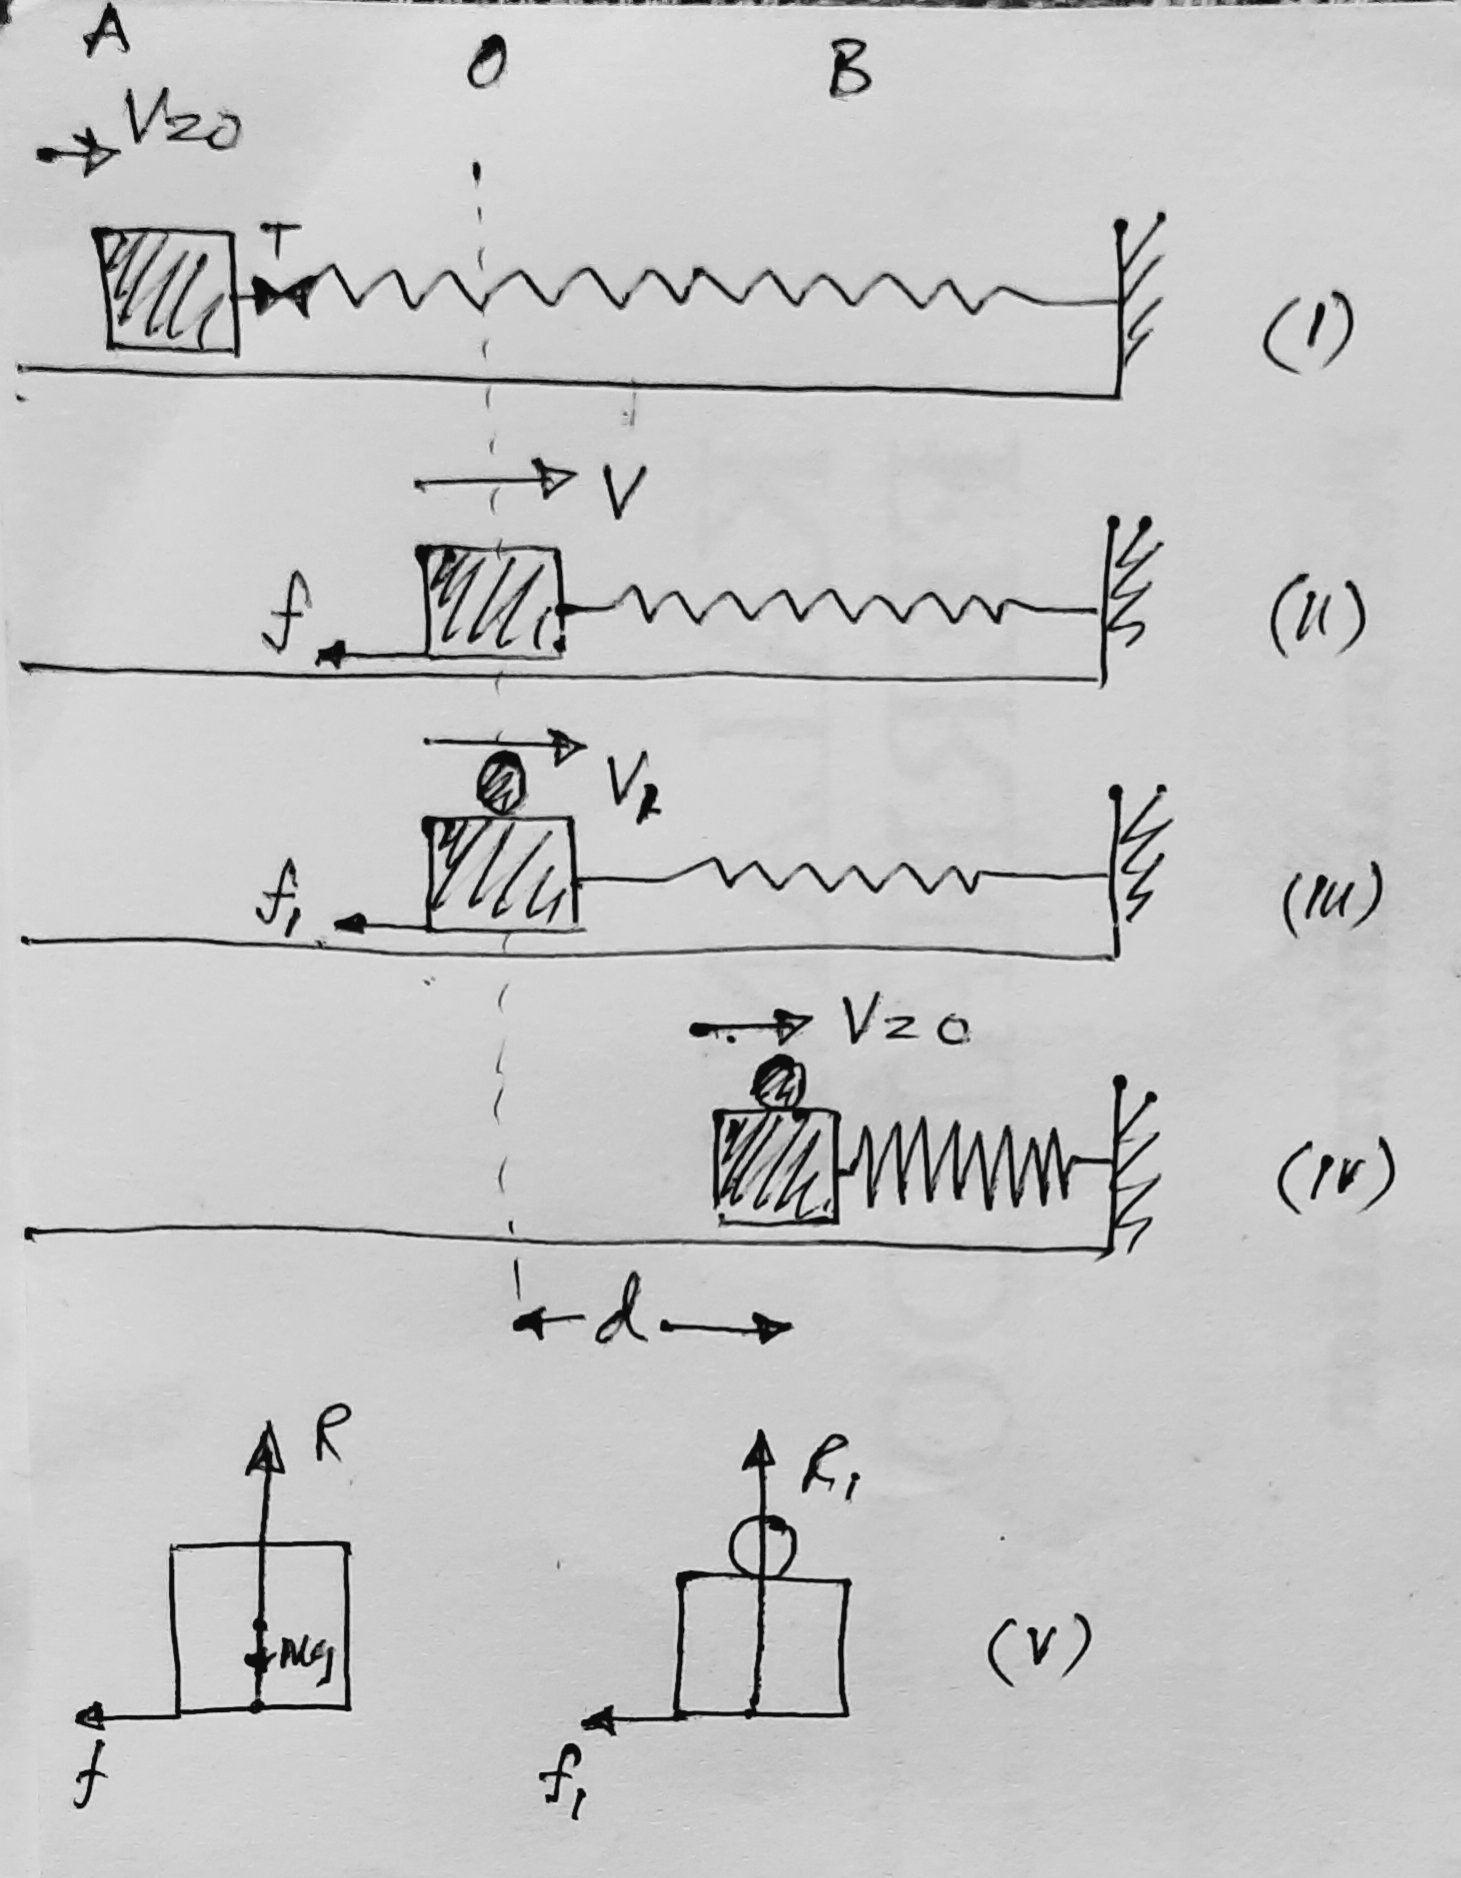 A O B
V=0
T
(I)
V
f
(II)
V₂
f₁
(III)
V=0
(IV)
d
R R₁
Mg
(V)
f f₁